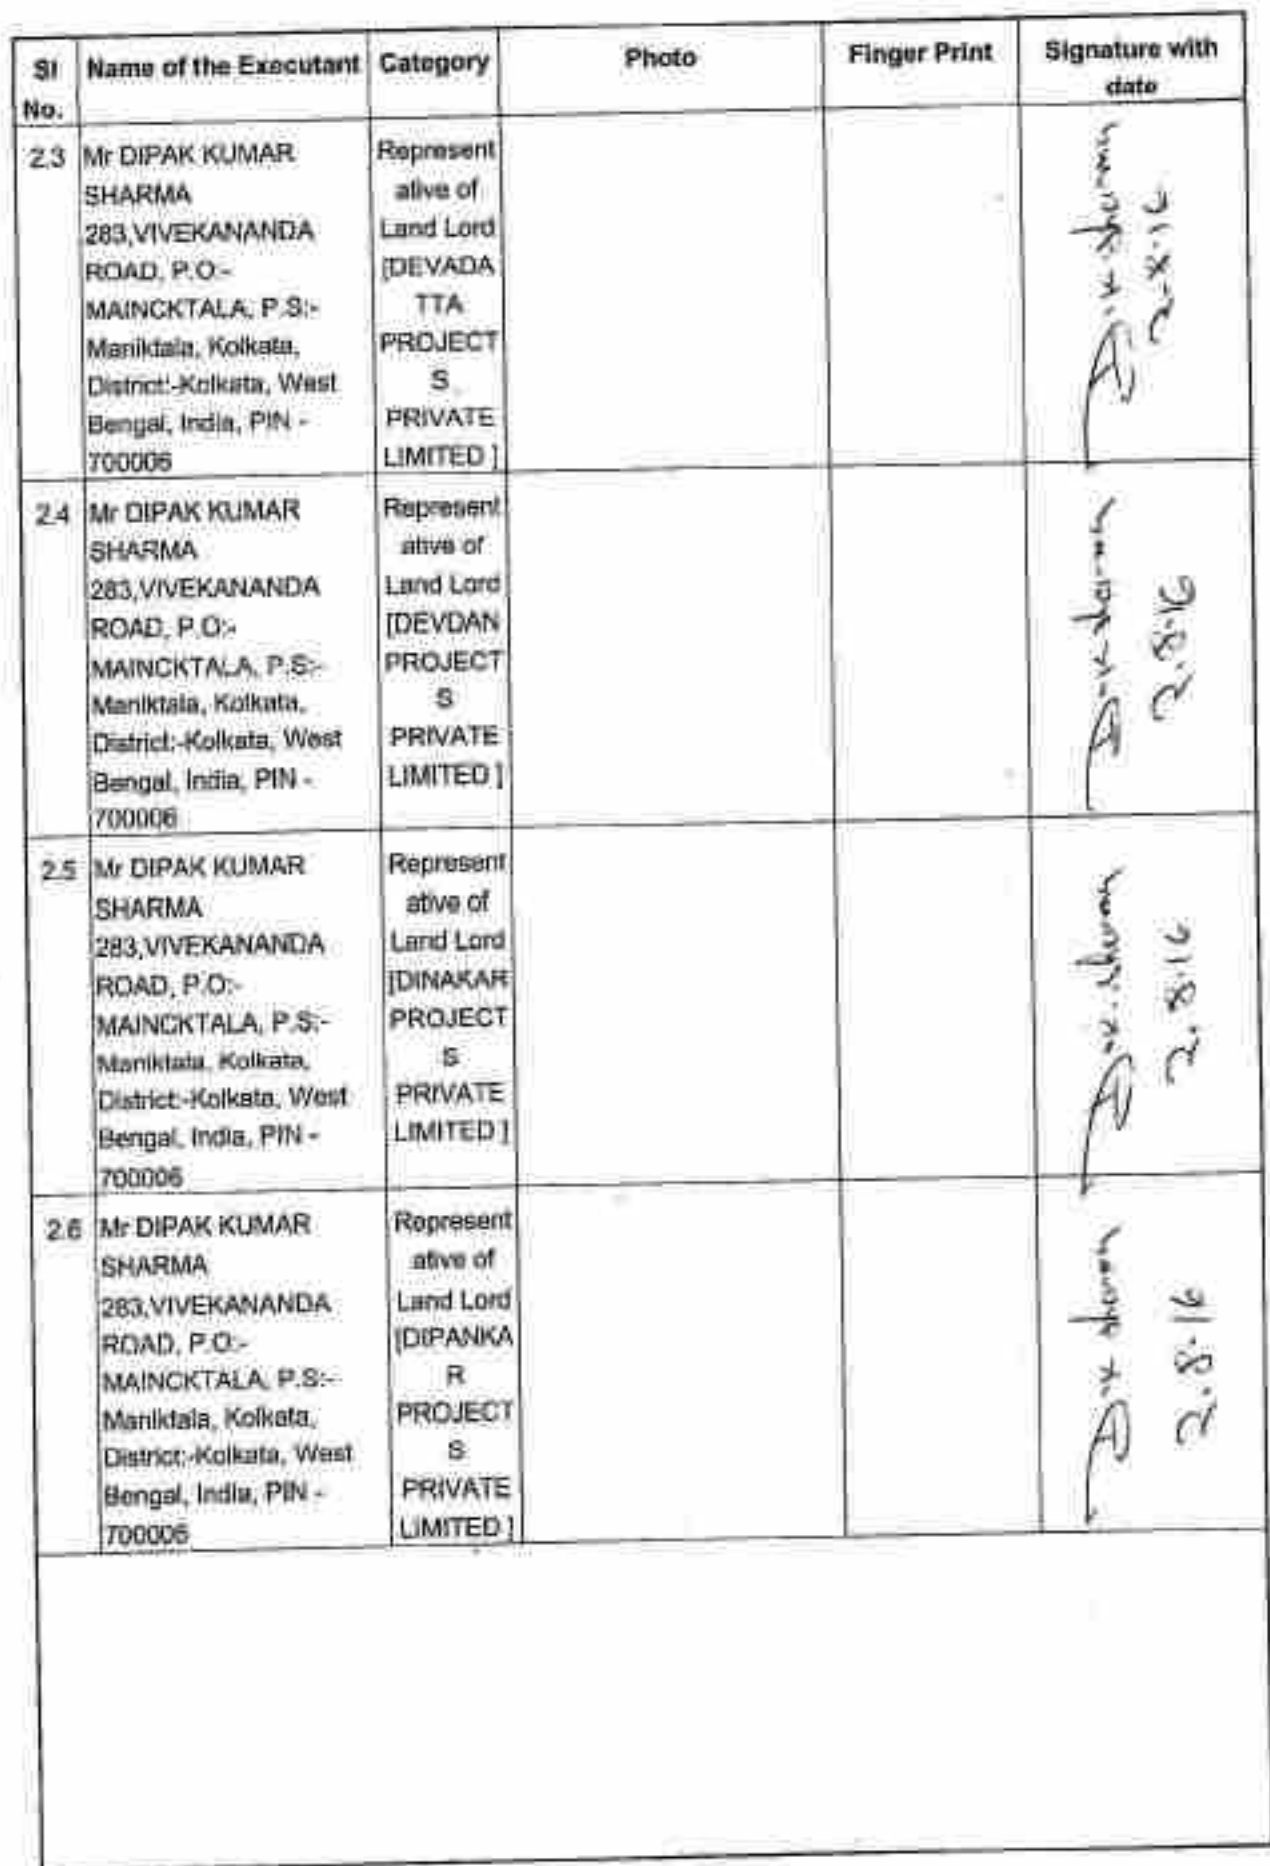 Sl No. Name of the Executant Category Photo Finger Print Signature with date
2.3
Mr DIPAK KUMAR
SHARMA
283,VIVEKANANDA
ROAD, P.O:-
MAINCKTALA, P.S:-
Maniktala, Kolkata,
District:-Kolkata, West
Bengal, India, PIN -
700006
Represent
ative of
Land Lord
[DEVADA
TTA
PROJECT
S
PRIVATE
LIMITED ]
D.K. Sharma
2.8.16
2.4
Mr DIPAK KUMAR
SHARMA
283,VIVEKANANDA
ROAD, P.O:-
MAINCKTALA, P.S:-
Maniktala, Kolkata,
District:-Kolkata, West
Bengal, India, PIN -
700006
Represent
ative of
Land Lord
[DEVDAN
PROJECT
S
PRIVATE
LIMITED ]
D.K. Sharma
2.8.16
2.5
Mr DIPAK KUMAR
SHARMA
283,VIVEKANANDA
ROAD, P.O:-
MAINCKTALA, P.S:-
Maniktala, Kolkata,
District:-Kolkata, West
Bengal, India, PIN -
700006
Represent
ative of
Land Lord
[DINAKAR
PROJECT
S
PRIVATE
LIMITED ]
D.K. Sharma
2.8.16
2.6
Mr DIPAK KUMAR
SHARMA
283,VIVEKANANDA
ROAD, P.O:-
MAINCKTALA, P.S:-
Maniktala, Kolkata,
District:-Kolkata, West
Bengal, India, PIN -
700006
Represent
ative of
Land Lord
[DIPANKA
R
PROJECT
S
PRIVATE
LIMITED ]
D.K. Sharma
2.8.16